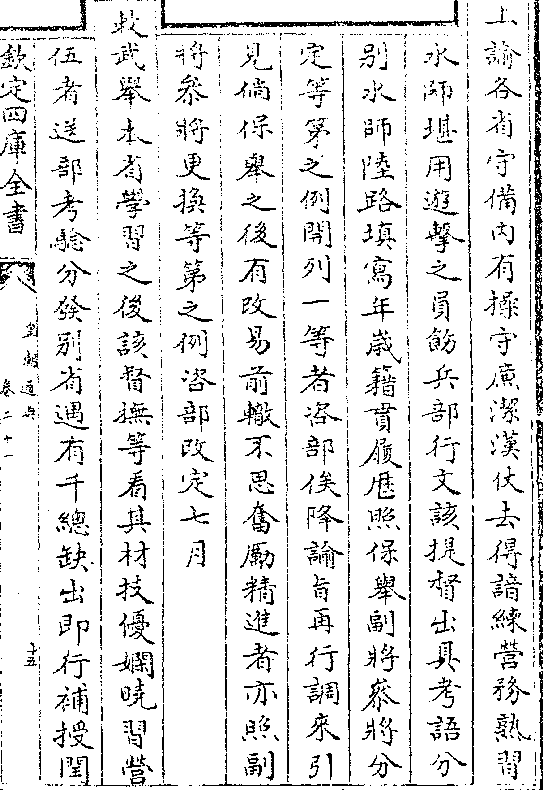 上諭各省守備内有操守廉潔漢仗去得諳練營務熟習
水師堪用遊擊之員飭兵部行文該提督出具考語分
别水師陸路填寫年歳籍貫履歴照保舉副將叅將分
定等第之例開列一等者咨部俟降諭旨再行調來引
見倘保舉之後有改易前轍不思奮勵精進者亦照副
將叅將更換等第之例咨部改定七月
敕武舉本省學習之後該督撫等看其材技優嫻曉習營
伍者送部考驗分發别省遇有千總缺出即行補授閏
欽定四庫全書
皇朝通典
卷二十一
十五